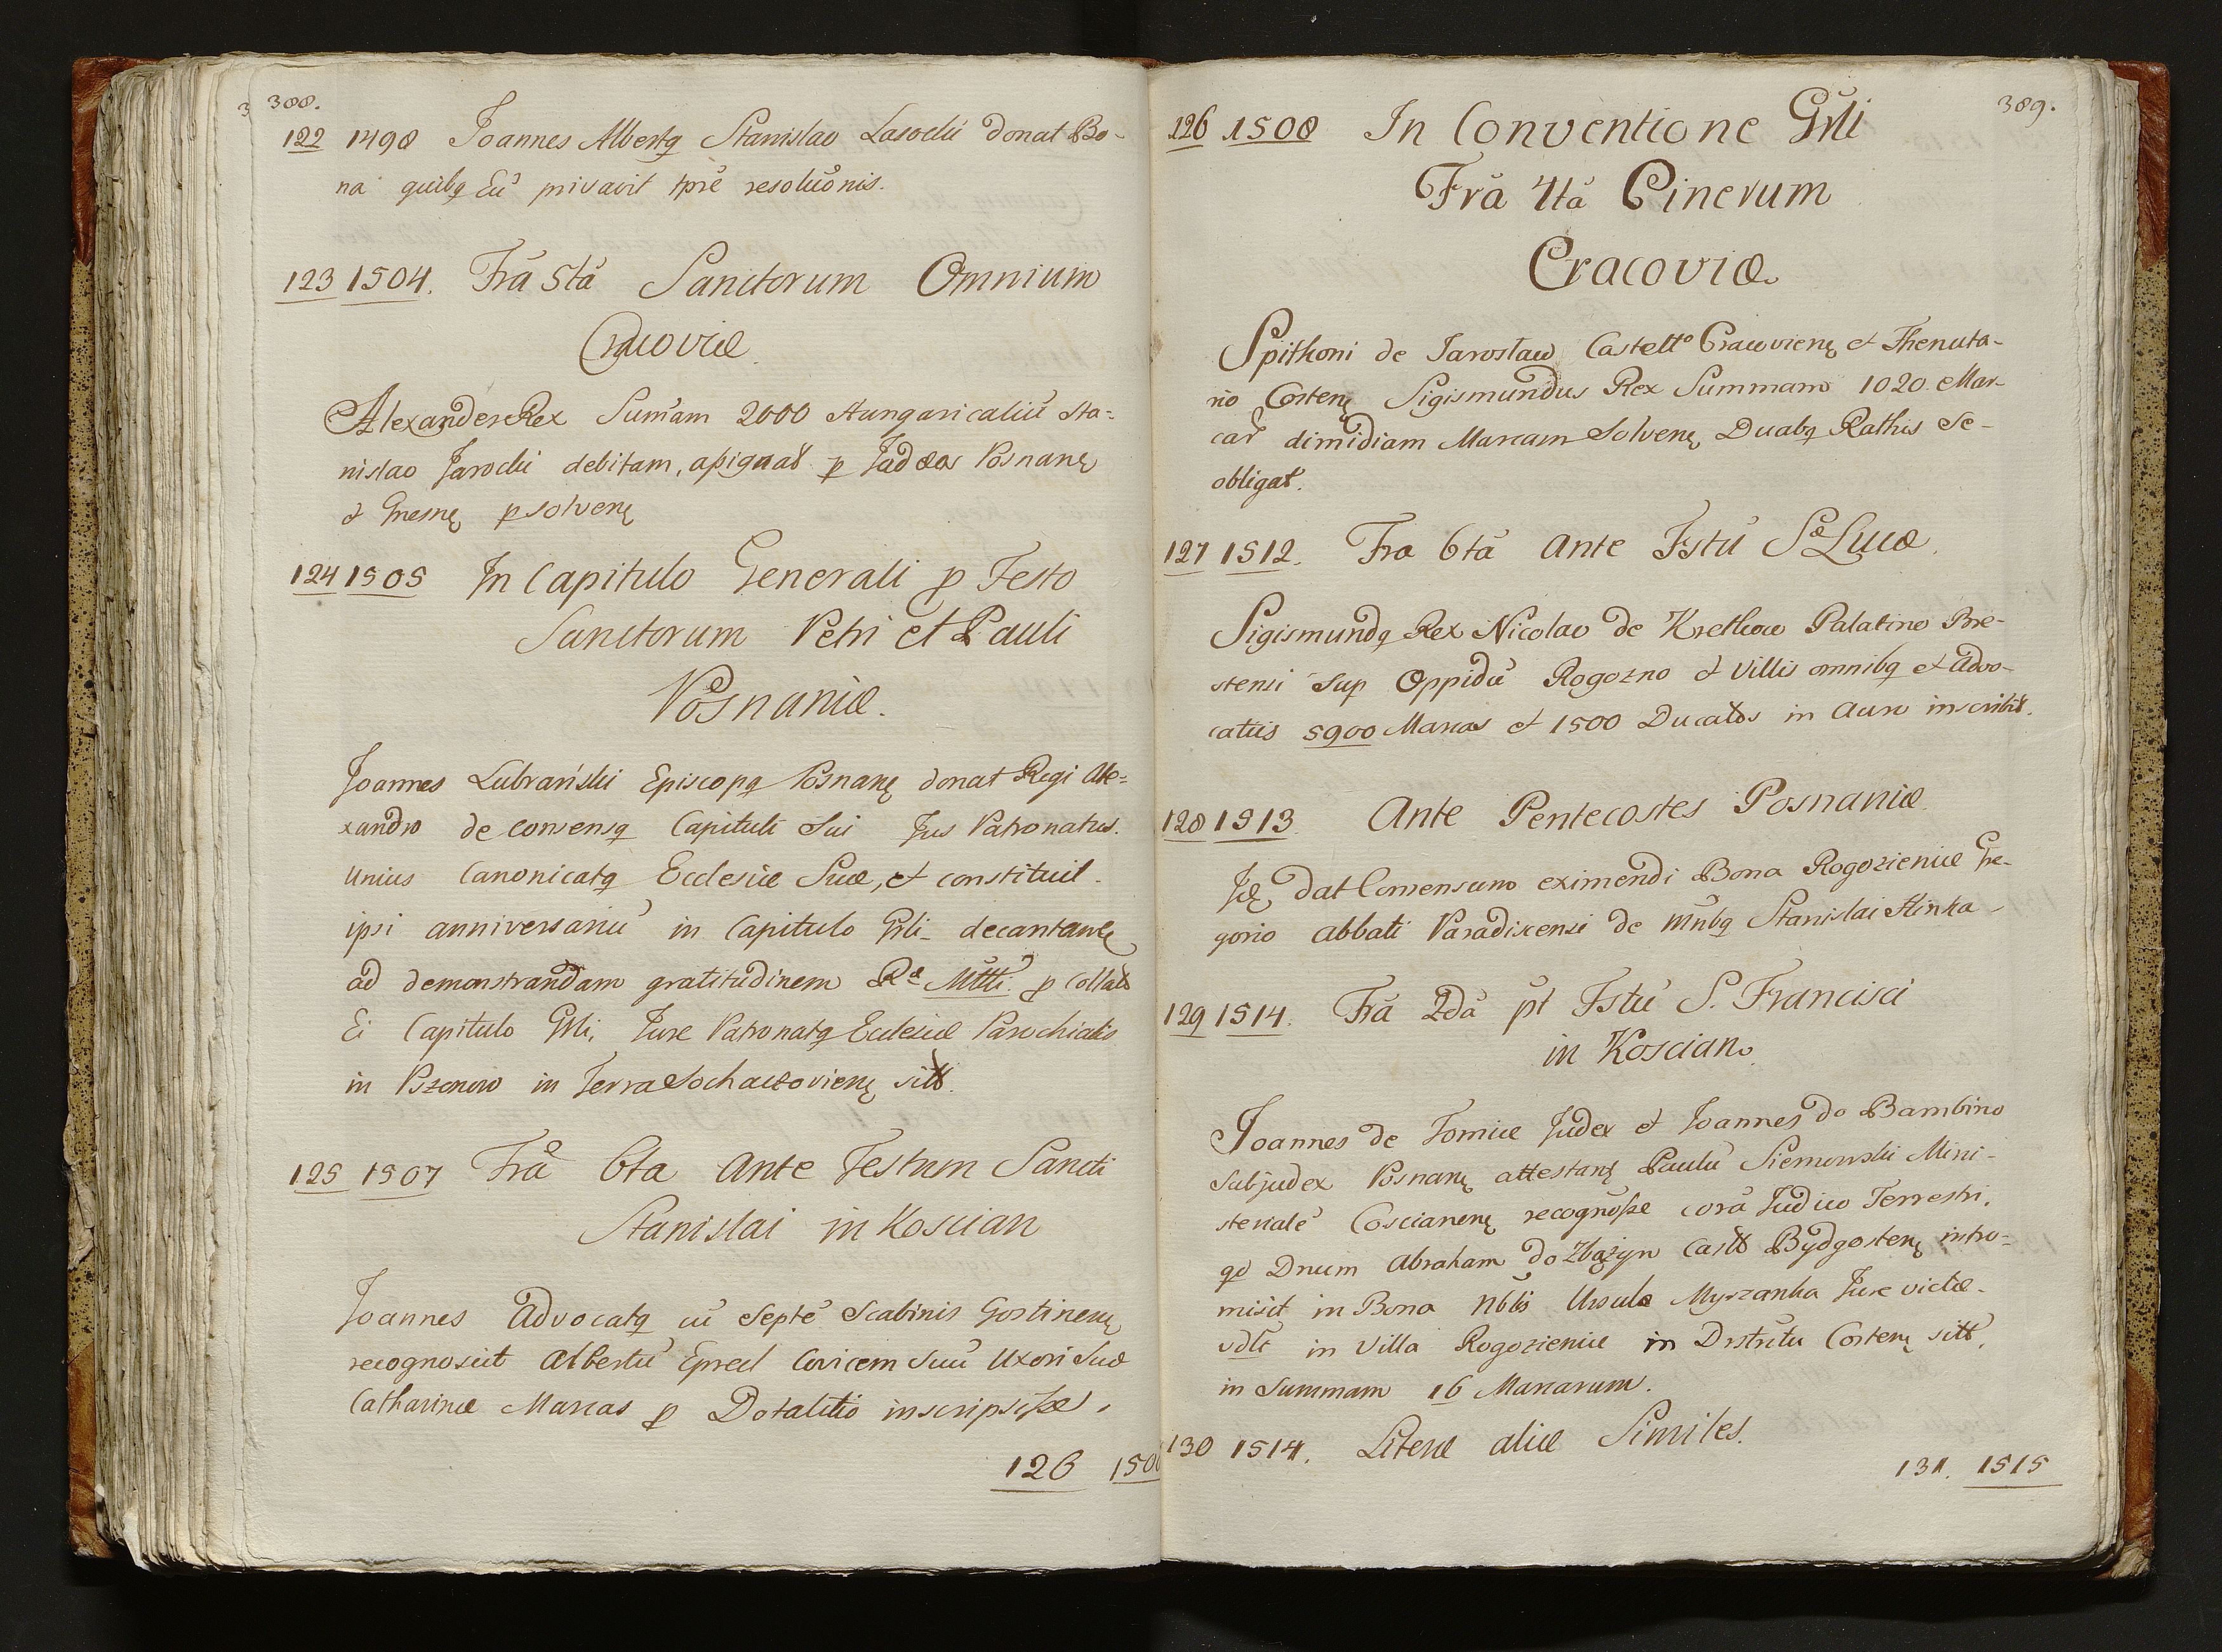 388.
122 1498 Joannes Albertq Stanislao Lasocki donat Bo-
na quibq Eū privavit tpre resoluōnis.
123 1504. Frā 5tā Sanctorum Omnium
Cracoviæ
Alexander Rex Sumam 2000 Hungaricaliū Sta=
nislao Jarocki debitam, assignat p Judæos Posnanę
et Gnesnę psolvenę
124 1505 In Capitulo Generali p Festo
Sanctorum Petri et Pauli
Posnaniæ.
Joannes Lubrański Episcopq Posnanę donat Regi Ale=
xandro de consensq Capituli Sui Jus Patronatus
unius Canonicatq Ecclesiæ Suæ, et constituit
ipsi anniversariū in Capitulo Grli decantanę
ad demonstrandam gratitudinem Ræ Mtti p collat
Ei Capitulo Grli, Jure Patronatq Ecclesiæ Parochialis
in Pszonow in Terra Sochaczovienę sitt.
125 1507 Frā 6ta Ante Festum Sancti
Stanislai in Koscian
Joannes Advocatq cū Septē Scabinis Gostinenę
recognoscit Albertū Civicem Suū Uxori Suæ
Catharinæ Marcas p Dotalitio inscripsisse.
126 150
389.
126 1508 In Conventione Grli
Frā 4tā Cinerum
Cracoviæ
Spithoni de Jarosław Castello Cracovienę et Thenuta-
rio Costenę Sigismundus Rex Summam 1020 Mar-
car dimidiam Marcam Solvenę Duabq Rathis Se-
obligat.
127 1512. Fra 6tā Ante Fstū Sæ Lucæ.
Sigismundq Rex Nicolao de Krethow Palatino Bre-
stensi Sup Oppidū Rogozno et Villis omnibq et Advo-
catiis 5900 Marcas et 1500 Ducatos in Auro inscribit.
128 1513. Ante Pentecostes Posnaniæ
Idę dat Consensum eximendi Bona Rogozieniæ Gre-
gorio Abbati Paradiscensi de mnbq Stanislai Hinka
129 1514. Frā 2dā pt Fstū S. Francisci
in Koscian.
Joannes de Tomice Judex et Joannes do Bambino
Subjudex Posnanę attestanę Paulū Siemowski Mini-
sterialē Coscianenę recognosse corā Judico Terrestri.
qd Dnum Abraham do Zbążyn Castt Bydgostenę intro-
misit in Bona Nblis Ursulæ Myszanka Jure victæ
vdlt in Villa Rogozieniæ in Dstrctu Costenę sitt.
in Summam 16 Marcarum.
130 1514. Literæ aliæ Similes.
131. 1515